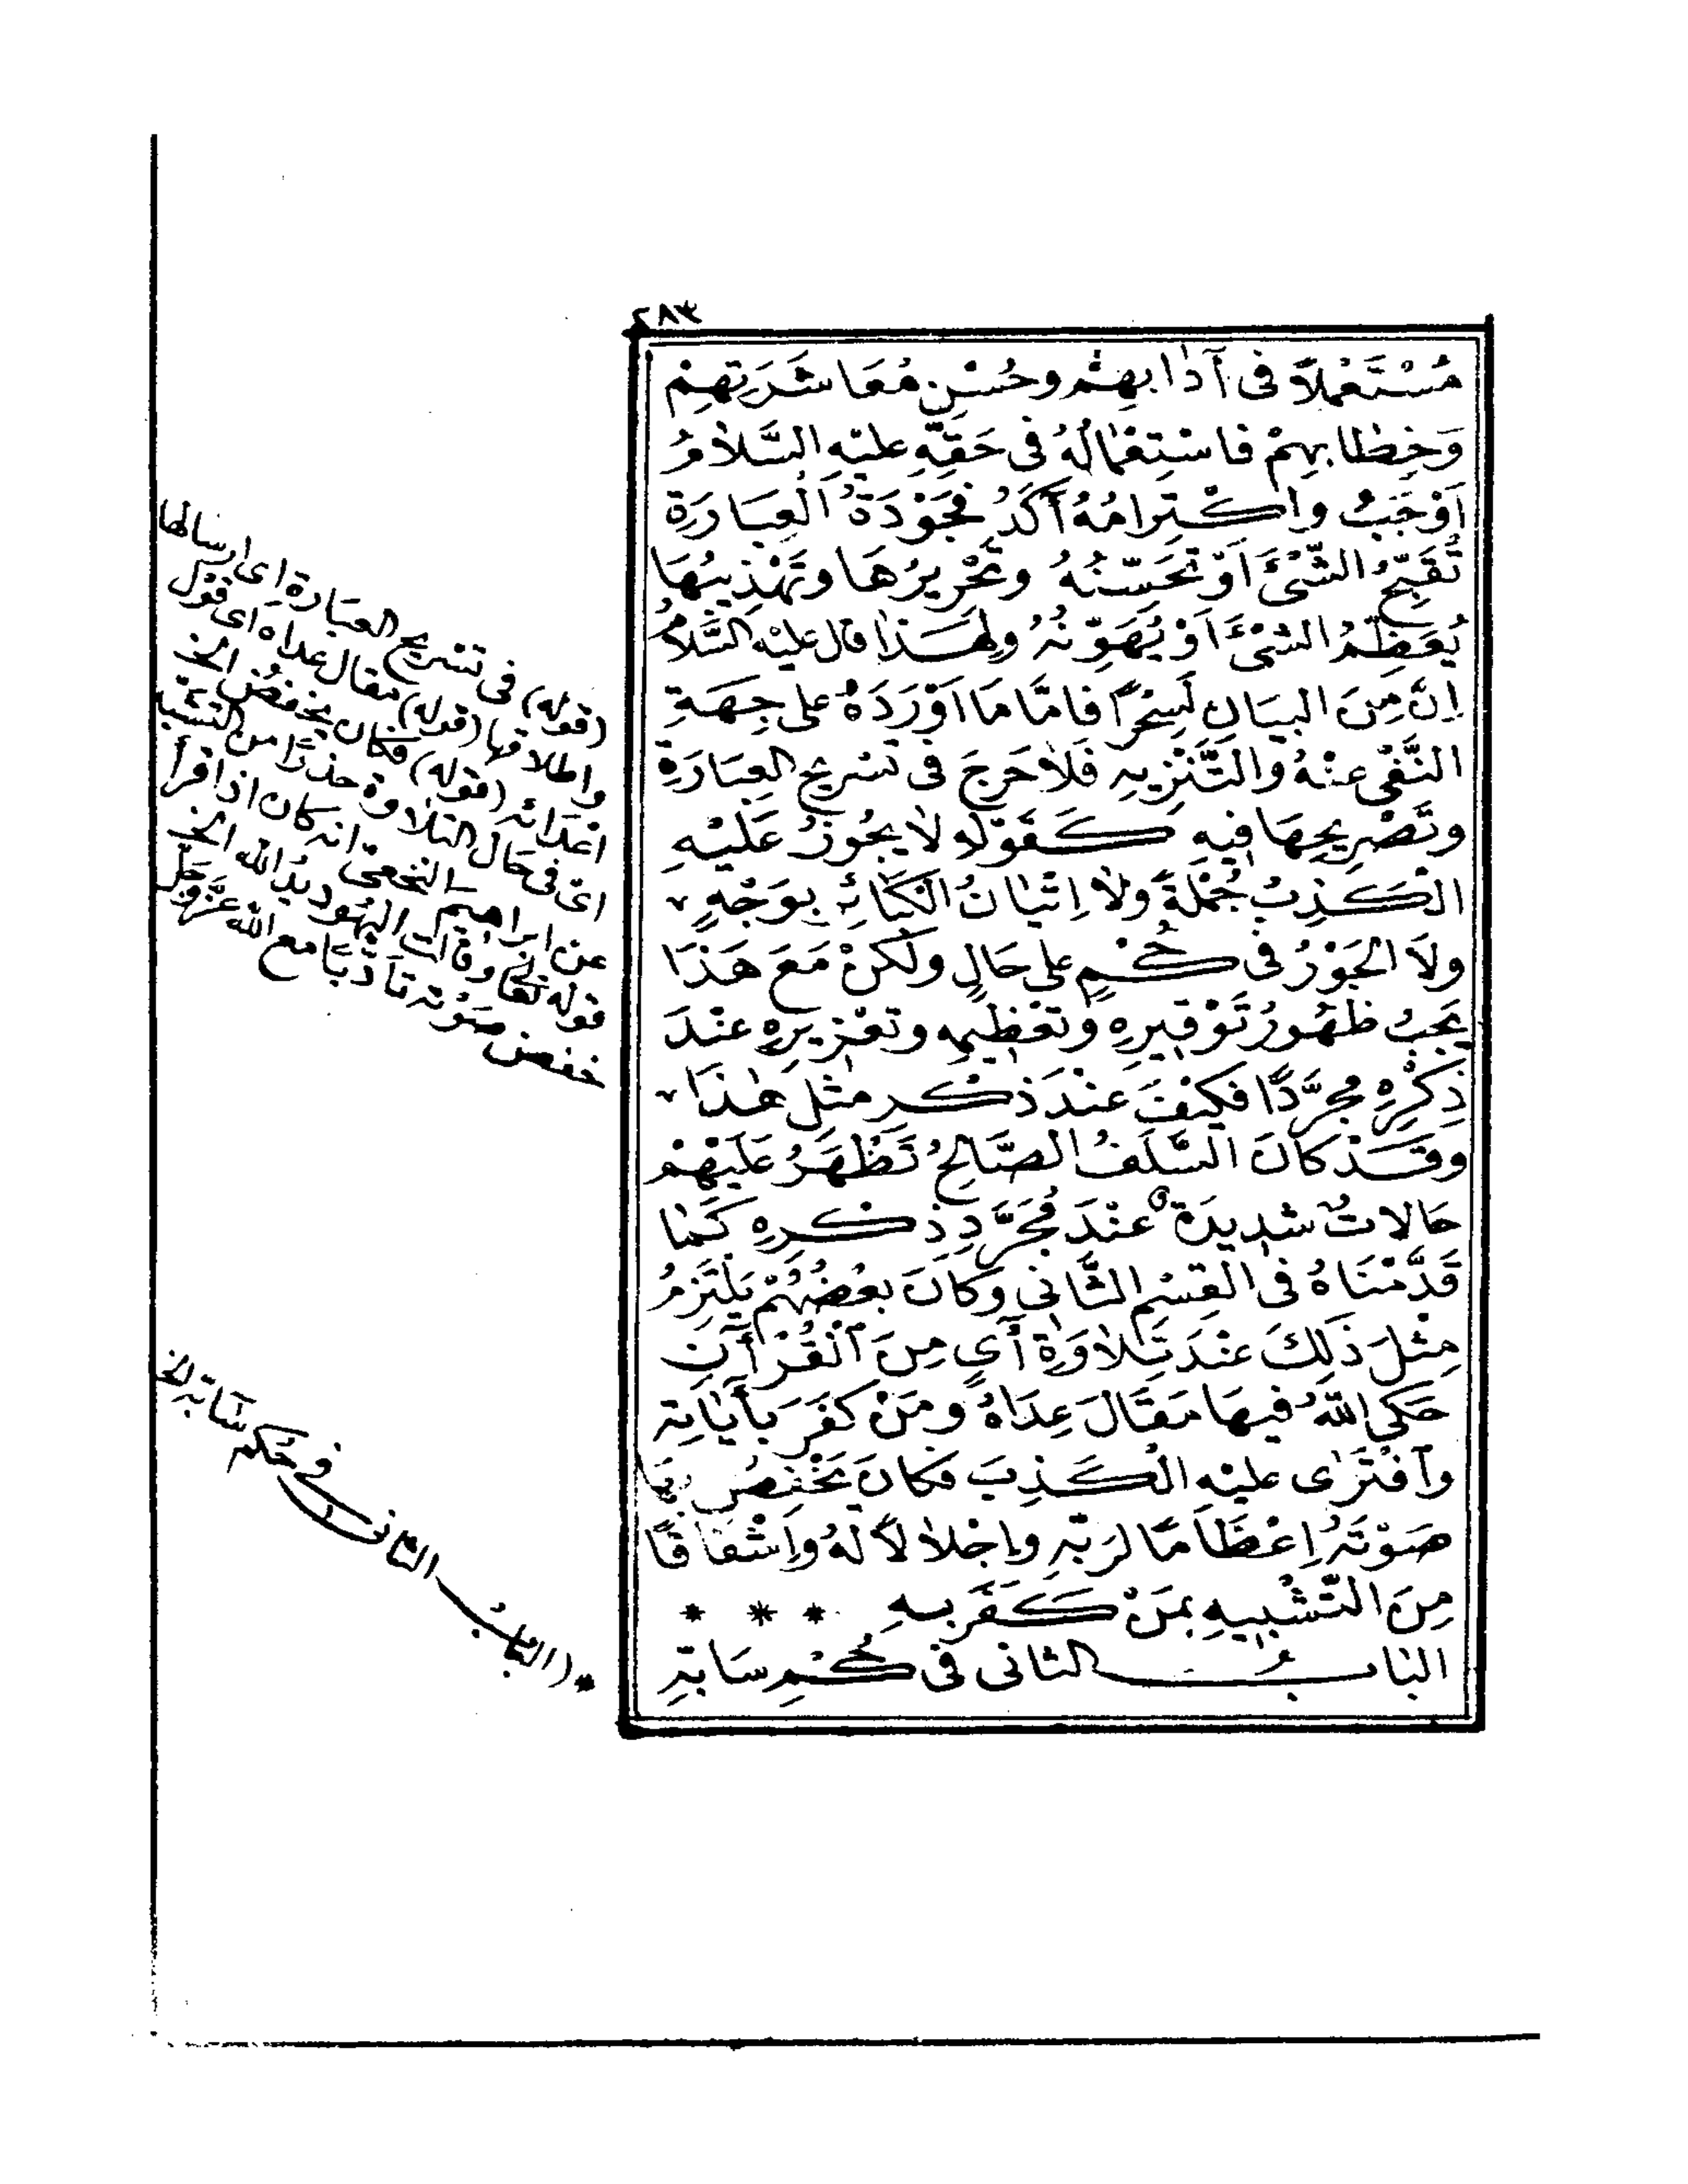 ٤٨٣
مُسْتَعْمَلًا فى آدَابِهِمْ وحُسْنِ مُعَاشَرَتِهِمْ
وَخِطَابِهِمْ فاسْتِعْمَالُهُ فى حَقِّهِ عليْهِ السَّلَامُ
اَوْجَبُ واِكْتِرامُهُ آكَدُ فَجَوْدَةُ الْعِبَارَةِ
تُقَبِّحُ الشَّىْءَ اَوْ تُحَسِّنُهُ وتَحْرِيرُهَا وتَهْذِيبُهَا
يُعَظِّمُ الشىْءَ اَوْ يُهَوِّنُهُ ولِهَذَا قال عليْهِ السَّلَامُ
اِنَّ مِنَ البيَانِ لَسِحْرًا فامَّا مَا اَوْرَدَهُ على جِهَةِ
النَّفْىِ عنْهُ والتَّنْزِيهِ فَلَا حَرَجَ فى تسْرِيحِ العِبَارَةِ
وتَصْرِيحِهَا فيهِ كَقَوْلِهِ لَا يجُوزُ عَلَيْهِ
الكَذِبُ جُمْلَةً ولَا اِتْيَانُ الكَبَائِرِ بِوَجْهٍ
ولَا الجَوْرُ فى حُكْمٍ على حَالٍ ولكنْ مَعَ هَذَا
يَجِبُ ظُهُورُ تَوْقِيرِهِ وتَعْظِيمِهِ وتَعْزِيرِهِ عنْدَ
ذِكْرِهِ مُجَرَّدًا فكيْفَ عنْدَ ذِكْرِ مثْلِ هٰذَا
وقَدْ كَانَ السَّلَفُ الصَّالحُ تَظْهَرُ عَلَيْهِمْ
حَالاتٌ شدِيدَة عنْدَ مُجَرَّدِ ذِكْرِهِ كَمَا
قَدَّمْنَاهُ فى القِسْمِ الثَّانى وكَانَ بعْضُهُمْ يَلْتَزِمُ
مِثْلَ ذَلِكَ عنْدَ تِلَاوَةِ آىٍ مِنَ الْقُرْآنِ
حَكَى اللّٰهُ فيهَا مَقَالَ عِدَاهُ ومَنْ كَفَرَ بآيَاتِهِ
وَافْتَرٰى عليْهِ الْكَذِبَ فكانَ يَخْفِضُ بِهَا
صَوْتَهُ اِعْظَامًا لرَبِّهِ واِجْلَالًا لَهُ واِشْفَاقًا
مِنَ التَّشْبِيهِ بمَنْ كَفَرَ بِهِ * * *
البَابُ الثانى فى حُكْمِ سَابِّهِ
(قوله) فى تسريح العبَارة اى ارسالها
واطلاقها (قوله) مقال عداه اى قول
اعْدَائه (قوله) فكان يخفض الخ
اىْ فى حَال التلاوة حذرًا من التشبه
عن ابراهيم النخعى انه كان اذا قرأ
قوله تعَالى وقالت اليَهُود يَدُ اللّٰه الخ
خفض صَوْته تأدّبًا مع اللّٰه عَزَّوجَلّ
*(البَابُ الثانى فى حُكم سَابِّه الخ